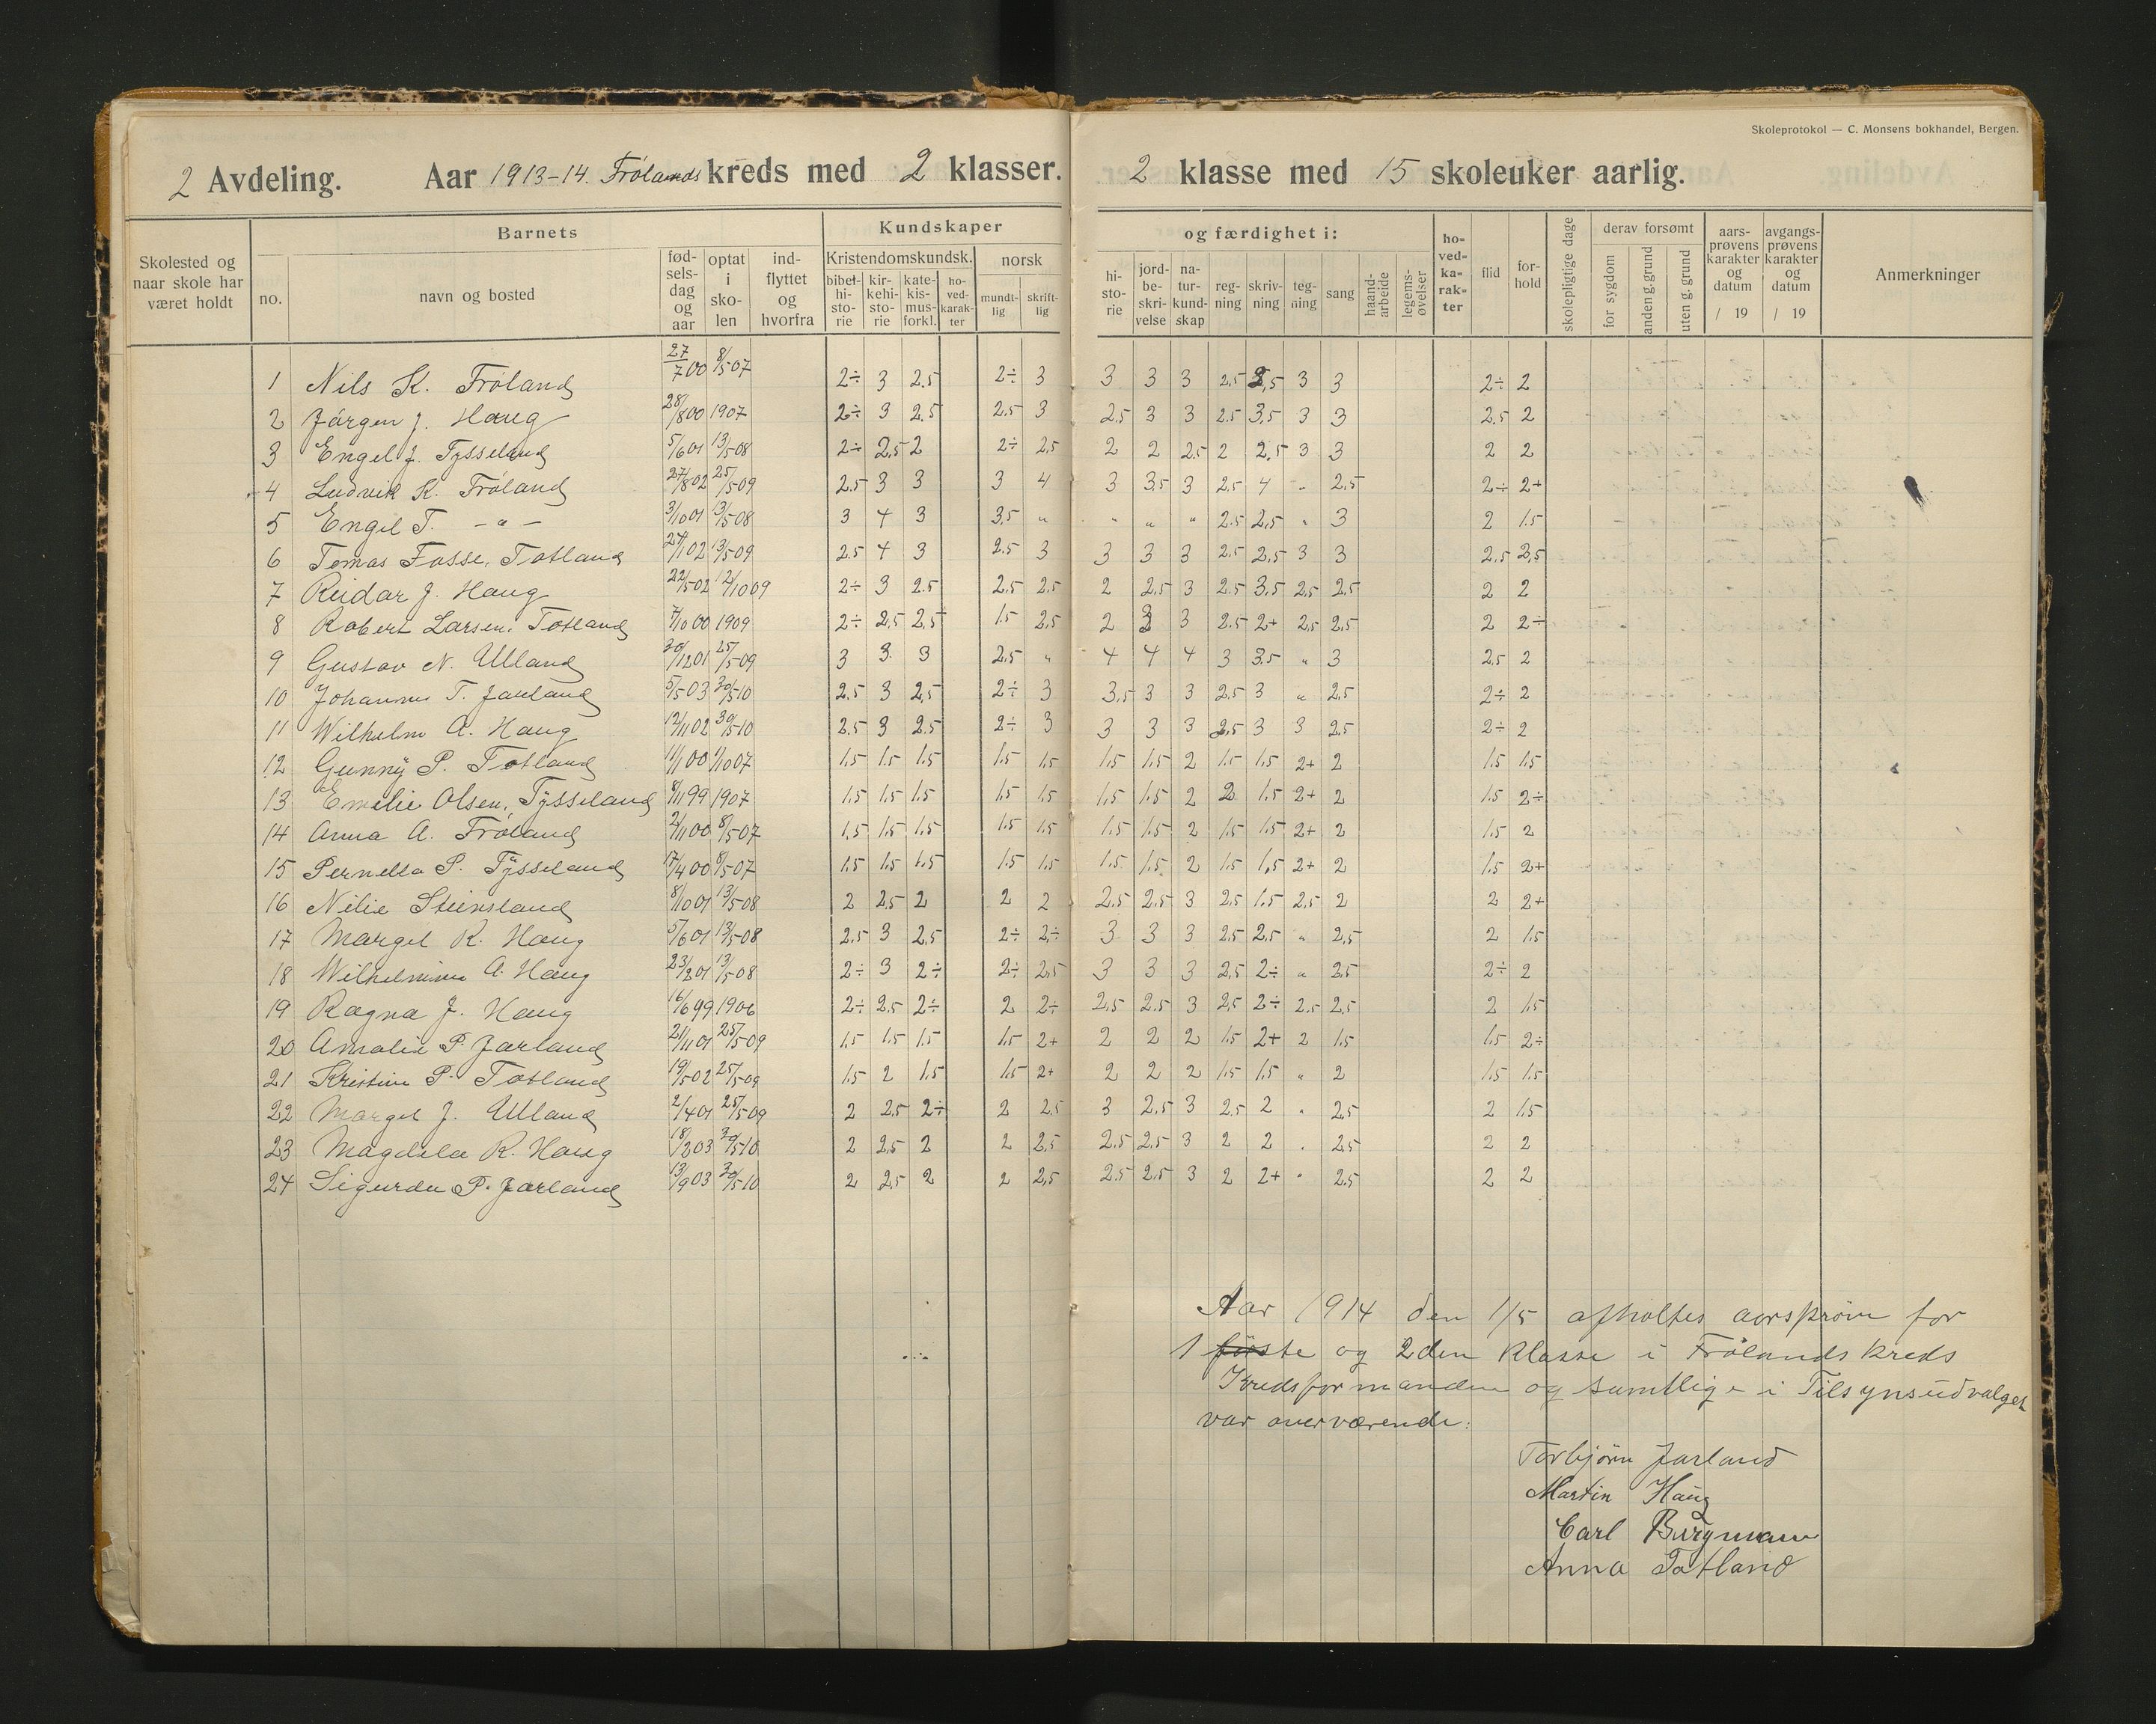 Skoleprotokol — C. Monsens bokhandel, Bergen.
2 Avdeling. Aar 1913-14. Frølands kreds med 2 klasser. 2 klasse med 15 skoleuker aarlig.
Skolested og naar skole har været holdt
Barnets
no. navn og bosted fødselsdag og aar optat i skolen indflyttet og hvorfra
Kundskaper og færdighet i:
Kristendomskundsk. norsk
bibelhistorie kirkehistorie katekismusforkl. hovedkarakter mundtlig skriftlig
historie jordbeskrivelse naturkundskap regning skrivning tegning sang haandarbeide legemsøvelser hovedkarakter flid forhold skolepligtige dage
derav forsømt for sygdom anden g. grund uten g. grund
aarsprøvens karakter og datum / 19 avgangsprøvens karakter og datum / 19 Anmerkninger
1 Nils K. Frøland 27/7 00 8/5 07 2÷ 3 2.5 2÷ 3 3 3 3 2,5 3,5 3 3 2÷ 2
2 Jørgen J. Haug 28/8 00 1907 2÷ 3 2.5 2.5 3 2,5 3 3 2.5 3,5 3 3 2,5 2
3 Engel J. Tysseland 5/6 01 13/5 08 2÷ 2,5 2 2÷ 2,5 2 2 2.5 2 2,5 3 3 2 2
4 Ludvik K. Frøland 27/8 02 25/5 09 2.5 3 3 3 4 3 3,5 3 2,5 4 " 2,5 2÷ 2+
5 Engel T. -"- 3/10 01 13/5 08 3 4 3 3,5 " " " " 2.5 2,5 " 3 2 1.5
6 Tomas Fosse, Totland 27/1 02 13/5 09 2.5 4 3 2.5 3 3 3 3 2.5 2,5 3 3 2.5 2,5
7 Reidar J. Haug 22/5 02 12/10 09 2÷ 3 2.5 2,5 2,5 2 2,5 3 2.5 3,5 2,5 2,5 2 2
8 Robert Larsen, Totland 7/10 00 1909 2÷ 2,5 2,5 1.5 2,5 2 3 3 2.5 2+ 2,5 2,5 2 2÷
9 Gustav N. Ulland 30/12 01 25/5 09 3 3 3 2,5 " 4 4 4 3 3.5 " 3 2,5 2
10 Johannes T. Jarland 5/5 03 30/5 10 2.5 3 2,5 2÷ 3 3,5 3 3 2.5 3 " 2,5 2÷ 2
11 Wilhelm A. Haug 12/11 02 30/5 10 2.5 3 2.5 2÷ 3 3 3 3 2,5 3 3 2,5 2÷ 2
12 Gunny P. Totland 11/1 00 1/10 07 1.5 1.5 1.5 1.5 1.5 1.5 1.5 2 1.5 1.5 2+ 2 1.5 1.5
13 Emelie Olsen, Tysseland 8/11 99 1907 1.5 1.5 1.5 1.5 1.5 1.5 1.5 2 2 1.5 2+ 2 1.5 2÷
14 Anna A. Frøland 2/11 00 8/5 07 1,5 1.5 1.5 1.5 1.5 1.5 1.5 2 1.5 1.5 2+ 2 1.5 2
15 Pernella P. Tysseland 17/4 00 8/5 07 1.5 1.5 1.5 1.5 1.5 1.5 1.5 2 1.5 1,5 2+ 2 1.5 2+
16 Nelie Steinsland 8/10 01 13/5 08 2 2.5 2 2 2 2.5 2.5 3 2,5 1.5 2,5 2 2 2+
17 Margel K. Haug 5/6 01 13/5 08 2.5 3 2,5 2÷ 2÷ 3 3 3 2,5 2,5 " 2,5 2 1.5
18 Wilhelmine A. Haug 23/2 01 13/5 08 2÷ 3 2÷ 2÷ 2,5 3 3 3 2,5 2÷ " 2.5 2÷ 2
19 Ragna J. Haug 16/6 99 1906 2÷ 2.5 2÷ 2 2÷ 2,5 2.5 3 2,5 2÷ 2.5 2,5 2 1.5
20 Amalie P. Jarland 21/11 01 25/5 09 1.5 1.5 1.5 1.5 2+ 2 2 2 1.5 2+ 2 1.5 1.5 2÷
21 Kristine P. Totland 19/5 02 25/5 09 1.5 2 1.5 1.5 2+ 2 2 2 1.5 1.5 " 2 1.5 1.5
22 Margel J. Ulland 2/4 01 25/5 09 2 2.5 2÷ 2 2,5 3 2,5 3 2,5 2 " 2,5 2 1.5
23 Magdela K. Haug 18/2 03 30/5 10 2 2,5 2 2 2,5 2.5 2.5 3 2 2 . 2,5 2 2
24 Sigurda P. Jarland 13/9 03 30/5 10 2 2,5 2 2 2,5 2.5 2,5 3 2 2+ " 2.5 2 2
Aar 1914 den 1/5 afholtes aarsprøve for
1 første og 2den klasse i Frølands kreds
Kredsformanden og samtlige i Tilsynsudvalget
var overværende:
Torbjørn Jarland
Martin Haug
Carl Bergmann
Anna Totland